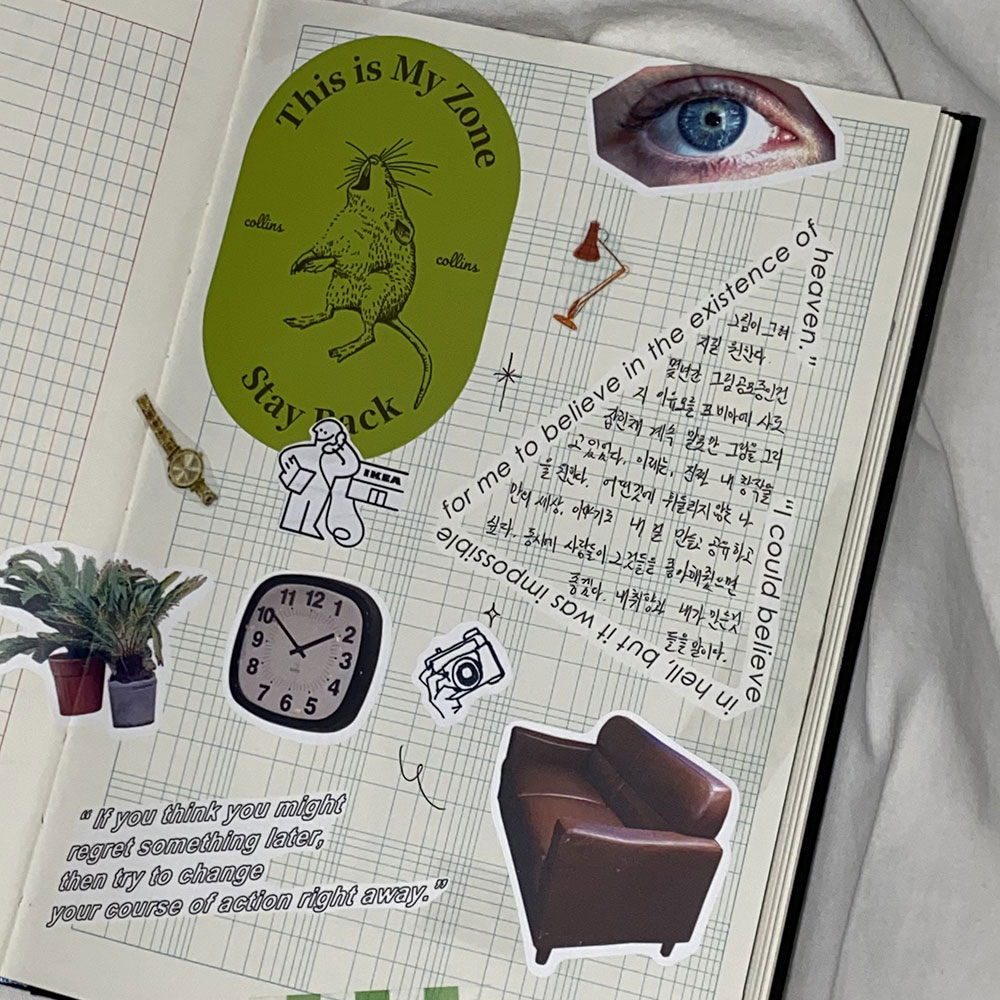 This is My Zone
collins
collins
Stay Back
IKEA
11 12 1
10 2
9 3
8 4
7 6 5
"I could believe
in hell, but it was impossible
for me to believe in the existence of
heaven."
그림이 그려
지길 원한다.
몇년간 그림공포증인건
지 이유모를 포비아에 사로
잡힌채 계속 말로만 그림을 그리
고있었다. 이제는, 진짜 내 창작을
을 원한다. 어떤것에 휘둘리지 않는 나
만의 세상, 이야기로 내 걸 만들고 공유하고
싶다. 동시에 사람들이 그것들을 좋아해줬으면
좋겠다. 내취향과 내가 만든것
들을 말이다.
"If you think you might
regret something later,
then try to change
your course of action right away."